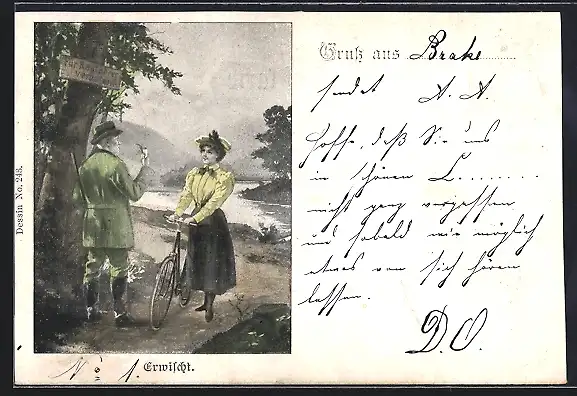 Gruß aus Brake
sendet A. A.
Hoffe, daß Sie uns
in schönen L........
nicht ganz vergessen
und sobald wie möglich
etwas von sich hören
lassen.
D.O.
Dessin No. 248.
No 1. Erwischt.